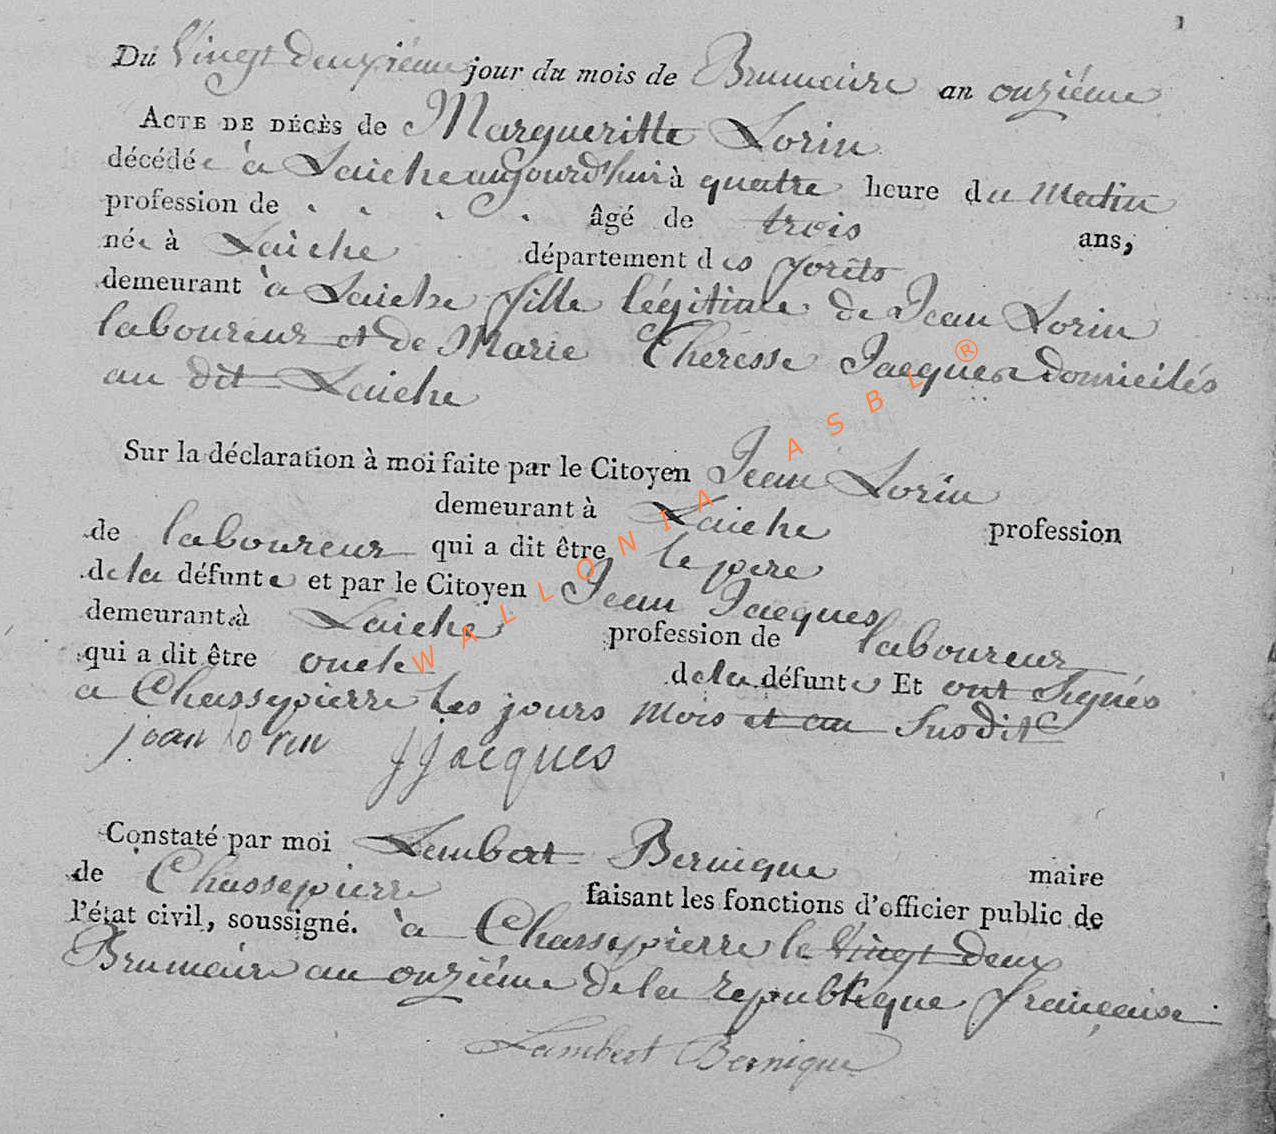 Du Vingt deuxiéme jour du mois de Brumaire an onziéme
ACTE DE DÉCÈS de Margueritte Lorin
décédée à Laiche aujourd'hui à quatre heure du Matin
profession de . . . . âgé de trois ans,
née à Laiche département des forêts
demeurant à Laiche fille légitime de Jean Lorin
laboureur et de Marie Theresse Jacques domicilés
au dit Laiche
Sur la déclaration à moi faite par le Citoyen Jean Lorin
demeurant à Laiche profession
de laboureur qui a dit être le pere
de la défunte et par le Citoyen Jean Jacques
demeurant à Laiche profession de laboureur
qui a dit être oncle de la défunte Et ont Signés
a Chassepierre les jours Mois et an Susdit
jean lorin JJacques
Constaté par moi Lambert Bernique maire
de Chassepierre faisant les fonctions d'officier public de
l'état civil, soussigné. à Chassepierre le Vingt deux
Brumaire an onziéme de la republique française
Lambert Bernique
WALLONIA ASBL ®